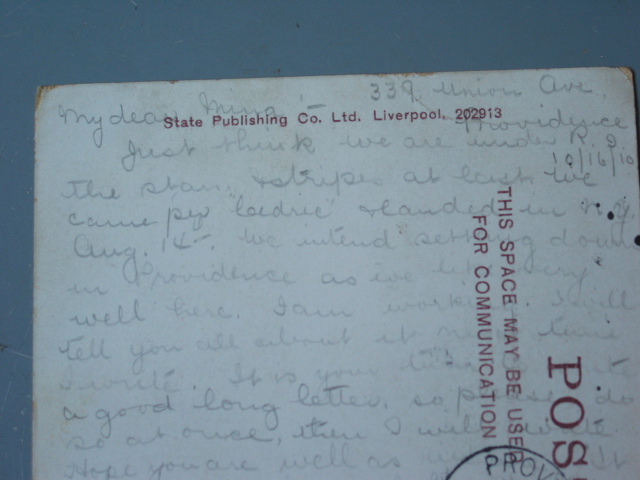 339 Union Ave
My dear Mina :-
State Publishing Co. Ltd. Liverpool, 202913
Providence
R. I.
10/16/10
Just think we are under
the stars & stripes at last. We
came per "Cedric" & landed in N.Y.
Aug. 14 - We intend settling down
in Providence as we like very
well here. I am working. I will
tell you all about it next time
I write. It is your turn
a good long letter, so please do
so at once, then I will write.
Hope you are well as
It
THIS SPACE MAY BE USED
FOR COMMUNICATION
POS
PROV